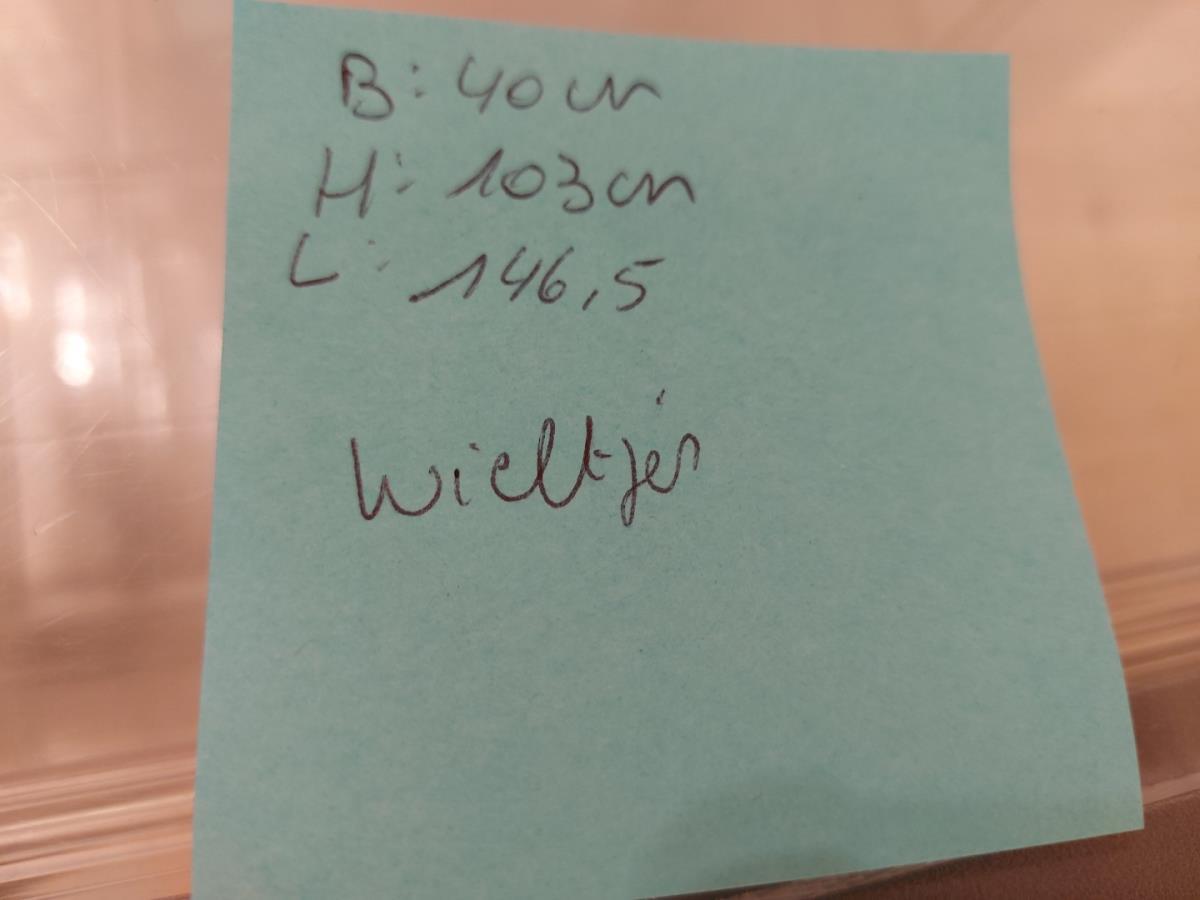 B: 40 cm
H: 103 cm
L: 146,5
Wieltjes